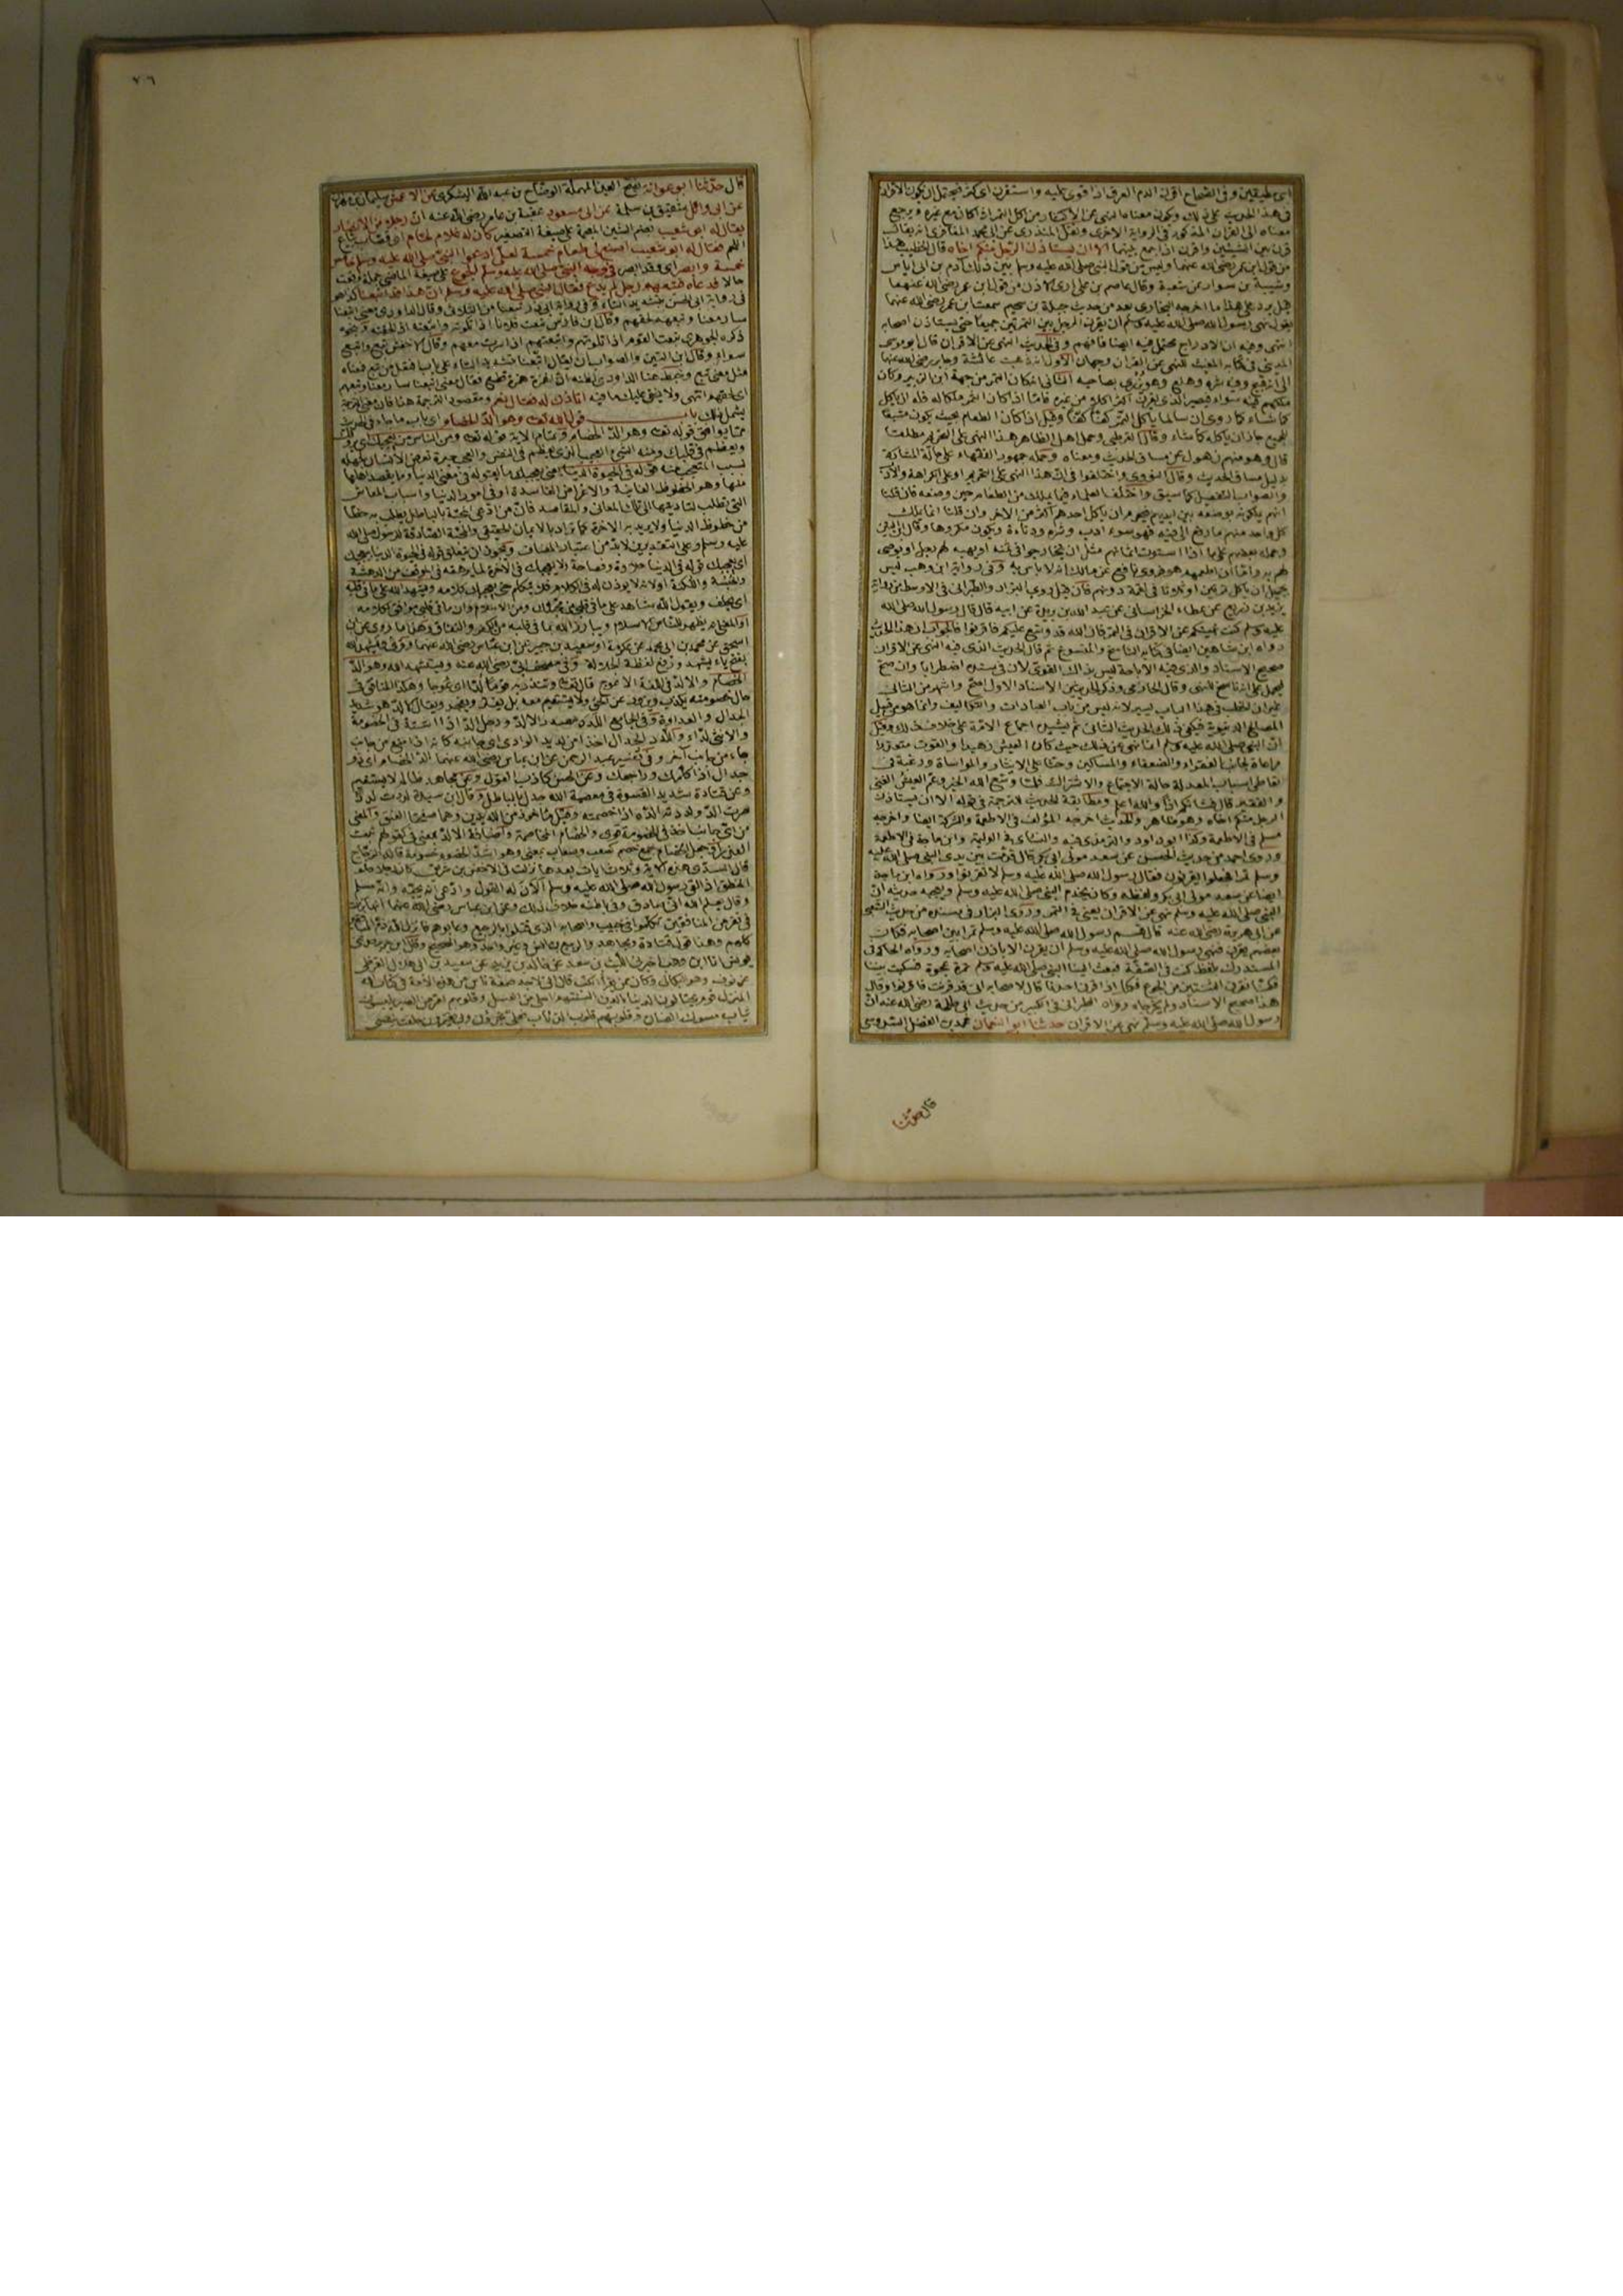 اى طيقين وفى الصحاح اقرن الدم العرق اذا قوى عليه واستقرن اى كثر فيحتمل ان يكون الاقران
فى هذا الحديث على ذلك ويكون معناه النهى عن الاكثار من اكل التمر اذا كان مع غيره ويرجع
معناه الى القران المذكور فى الرواية الاخرى ونقل المنذرى عن ابى محمد المعافرى انه يقال
قرن بين الشيئين واقرن اذا جمع بينهما الا ان يستأذن الرجل منكم اخاه قال الخطيب هذا
من قول ابن عمر رضى الله عنهما وليس من قول النبى صلى الله عليه وسلم بين ذلك آدم بن ابى اياس
وشبابة بن سوار عن شعبة وقال عاصم بن على ارى الاذن من قول ابن عمر رضى الله عنهما
قيل يرد على هذا ما اخرجه البخارى بعد من حديث جبلة بن سحيم سمعت ابن عمر رضى الله عنهما
يقول نهى رسول الله صلى الله عليه وسلم ان يقرن الرجل بين التمرتين جميعا حتى يستأذن اصحابه
انتهى وفيه ان الادراج محتمل فيه ايضا فافهم وفى الحديث النهى عن الاقران قال ابو موسى
المدينى فى كتابه المغيث للنهى عن القران وجهان الاول انه ذهبت عائشة وجابر رضى الله عنهما
الى انه قبيح وفيه شره وهلع وهو يزرى بصاحبه الثانى انه كان التمر من جهة ابن الزبير وكان
ملكهم فيه سواء فيصير الذى يقرن اكثر اكلا من غيره فاما اذا كان التمر ملكا له فله ان ياكل
كما شاء كما روى ان سالما ياكل التمر كفا كفا وقيل اذا كان الطعام بحيث يكون مشبعا
للجميع جاز ان ياكله كما شاء وقال القرطبى وحمل اهل الظاهر هذا النهى على التحريم مطلقا
قال وهو منهم ذهول عن مساق الحديث ومعناه وحمله جمهور الفقهاء على حالة المشاركة
بدليل مساق الحديث وقال النووى واختلفوا فى ان هذا النهى على التحريم او على الكراهة والادب
والصواب التفصيل كما سبق واختلف العلماء فيما يملك من الطعام حين وضعه فان قلنا
انهم يملكونه بوضعه بين ايديهم فيحرم ان ياكل احدهم اكثر من الآخر وان قلنا انما يملك
كل واحد منهم ما رفع الى فيه فهو سوء ادب وشره ودناءة ويكون مكروها وقال ابن التين
وحمله بعضهم على ما اذا استوت اثمانهم مثل ان يتخارجوا فى ثمنه او يهبه لهم رجل او يوصى
لهم به واما ان اطعمهم هو فروى نافع عن مالك انه لا باس به وفى رواية ابن وهب ليس
بجميل ان ياكل تمرتين او ثلاثا فى لقمة دونهم فان قيل روى البزار والطبرانى فى الاوسط من رواية
يزيد بن زريع عن عطاء الخراسانى عن عبد الله بن بريدة عن ابيه قال قال رسول الله صلى الله
عليه وسلم كنت نهيتكم عن الاقران فى التمر فان الله قد وسع عليكم فاقرنوا فالجواب ان هذا الحديث
رواه ابن شاهين ايضا فى كتابه الناسخ والمنسوخ ثم قال الحديث الذى فيه النهى عن الاقران
صحيح الاسناد والذى فيه الاباحة ليس بذاك القوى لان فى سنده اضطرابا وان صح
فيحمل على انه ناسخ للنهى وقال الحازمى وذكر الحديثين الاسناد الاول اصح واشهر من الثانى
غير ان الخطب فى هذا الباب يسير لانه ليس من باب العبادات والتكاليف وانما هو من قبيل
المصالح الدنيوية فيكفى فى ذلك الحديث الثانى ثم يشيده اجماع الامة على خلاف ذلك وقيل
ان النبى صلى الله عليه وسلم انما نهى عن ذلك حيث كان العيش زهيدا والقوت متعذرا
مراعاة لجانب الفقراء والضعفاء والمساكين وحثا على الايثار والمواساة ورغبة فى
تعاطى اسباب المعدلة حالة الاجتماع والاشتراك فلما وسع الله الخير وعم العيش الغنى
والفقير قال فشانكم اذا والله اعلم ومطابقة الحديث للترجمة فى قوله الا ان يستأذن
الرجل منكم اخاه وهو ظاهر والحديث اخرجه المؤلف فى الاطعمة والشركة ايضا واخرجه
مسلم فى الاطعمة وكذا ابو داود والترمذى فيه والنسائى فى الوليمة وابن ماجة فى الاطعمة
وروى احمد من حديث الحسن عن سعد مولى ابى بكر قال قدمت بين يدى النبى صلى الله عليه
وسلم تمرا فجعلوا يقرنون فقال رسول الله صلى الله عليه وسلم لا تقرنوا ورواه ابن ماجة
ايضا عن سعد مولى ابى بكر ولفظه وكان يخدم النبى صلى الله عليه وسلم ويعجبه حديثه ان
النبى صلى الله عليه وسلم نهى عن الاقران يعنى فى التمر وروى البزار فى مسنده من حديث الشعبى
عن ابى هريرة رضى الله عنه قال قسم رسول الله صلى الله عليه وسلم تمرا بين اصحابه فكان
بعضهم يقرن فنهى رسول الله صلى الله عليه وسلم ان يقرن الا باذن اصحابه ورواه الحاكم فى
المستدرك بلفظ كنت فى الصفة فبعث الينا النبى صلى الله عليه وسلم تمرة عجوة فسكبت بيننا
فكنا نقرن الثنتين من الجوع فكنا اذا قرن احدنا قال لاصحابه انى قد قرنت فاقرنوا وقال
هذا صحيح الاسناد ولم يخرجاه ورواه الطبرانى فى الكبير من حديث ابى طلحة رضى الله عنه ان
رسول الله صلى الله عليه وسلم نهى عن الاقران حدثنا ابو النعمان محمد بن الفضل السدوسى
قال حدثنا
٧٦
قال حدثنا ابو عوانة بفتح العين المهملة الوضاح بن عبد الله اليشكرى عن الاعمش سليمان بن مهران
عن ابى وائل شقيق بن سلمة عن ابى مسعود عقبة بن عامر رضى الله عنه ان رجلا من الانصار
يقال له ابو شعيب بضم الشين المعجمة على صيغة التصغير كان له غلام لحام اى قصاب يبيع
اللحم فقال له ابو شعيب اصنع لى طعام خمسة لعلى ادعوا النبى صلى الله عليه وسلم خامس
خمسة وابصر اى وقد ابصر فى وجه النبى صلى الله عليه وسلم الجوع على صيغة الماضى جملة وقعت
حالا فدعاه فتبعهم رجل لم يدع فقال النبى صلى الله عليه وسلم ان هذا قد اتبعنا كذا هو
فى رواية ابى الحسن بتشديد التاء وفى رواية ابى ذر تبعنا من الثلاثى وقال الداودى معنى اتبعنا
سار معنا وتبعهم لحقهم وقال ابن فارس تبعت فلانا اذا تلوته واتبعته اذا لحقته ونحوه
ذكره الجوهرى تبعت القوم اذا تلوتهم واتبعتهم اذا سرت معهم وقال الاخفش تبع واتبع
سواء وقال ابن التين والصواب ان يقال اتبعنا بتشديد التاء على بابها فتعلى من تبع فمعناه
مثل معنى تبع وضبط هنا الداودى بظنه ان الهمزة همزة قطع فقال معنى اتبعنا سار معنا وتبعهم
اى لحقهم انتهى ولا يخفى عليك ما فيه اتاذن له فقال نعم ومقصود الترجمة هنا فان معنى الترجمة
يشمل ذلك باب قول الله تعالى وهو الد الخصام اى باب ما جاء فى الحديث
مما يوافق قوله تعالى وهو الد الخصام وتمام الآية قوله تعالى ومن الناس من يعجبك اى يروقك
ويعظم فى قلبك ومنه الشئ العجيب الذى يعظم فى النفس والعجب حيرة تعرض للانسان لجهله
بسبب المتعجب منه قوله فى الحيوة الدنيا يعنى يعجبك ما يقوله فى معنى الدنيا وما يقصد اهلها
منها وهو الحظوظ الفانية والاغراض الفاسدة او فى امور الدنيا واسباب المعاش
من حظوظ الدنيا ولا يريد به الآخرة كما تراد بالايمان الحقيقى والمحبة الصادقة للرسول صلى الله
عليه وسلم وعلى التقديرين لا بد من اعتبار المضاف ويجوز ان يتعلق قوله فى الحيوة الدنيا بيعجبك
اى يعجبك قوله فى الدنيا حلاوة وفصاحة ولا يعجبك فى الآخرة لما يرهقه فى الموقف من الدهشة
والحبسة واللكنة او لانه لا يؤذن له فى الكلام فلا يتكلم حتى يعجبك كلامه ويشهد الله على ما فى قلبه
اى يحلف ويقول الله شاهد على ما فى قلبى من محبتك ومن الاسلام وان ما فى قلبى موافق لكلامه
او المعنى انه يظهر للناس الاسلام ويبارز الله بما فى قلبه من الكفر والنفاق وهذا ما روى عن ابن
اسحق عن محمد بن ابى محمد عن عكرمة او سعيد بن جبير عن ابن عباس رضى الله عنهما
بفتح ياء يشهد ورفع لفظة الجلالة وفى مصحف ابى رضى الله عنه ويستشهد الله وهو الد
الخصام والالد فى اللغة الاعوج قال تعالى وتنذر به قوما لدا اى عوجا وهكذا المنافق فى
حال خصومته يكذب ويزور عن الحق ولا يستقيم معه بل يفترى ويفجر ويقال الالد هو شديد
الجدال والعداوة ورجل الد اذا اشتد فى الخصومة
والانثى لداء واللدد الجدال اخذا من لديدى الوادى اى جانبيه كانه اذا منع من جانب
جاء من جانب آخر وفى تفسير عبد الرحمن عن ابن عباس رضى الله عنهما الد الخصام اى ذو
جدال اذا كلمك وراجعك وعن الحسن كاذب القول وعن مجاهد ظالم لا يستقيم
وعن قتادة شديد القسوة فى معصية الله جدل بالباطل وقال ابن سيده لددت لددا
صرت الد ولددته الده اذا خصمته وقيل مأخوذ من اللديدين وهما صفحتا العنق والمعنى
من اى جانب اخذ فى الخصومة قوى والخصام المخاصمة واضافة الالد بمعنى فى كقولهم ثبت
الغدر او جعل الخصام جمع خصم كصعب وصعاب بمعنى وهو اشد الخصوم خصومة قاله الزجاج
قال السدى هذه الآية وثلاث آيات بعدها نزلت فى الاخنس بن شريق كان رجلا حلو
المنطق اذا لقى رسول الله صلى الله عليه وسلم ألان له القول وادعى انه يحبه وانه مسلم
وقال يعلم الله انى صادق وفى باطنه خلاف ذلك وعن ابن عباس رضى الله عنهما انها نزلت
فى نفر من المنافقين تكلموا فى خبيب واصحابه الذين قتلوا بالرجيع وعابوهم فانزل الله ذم المنافقين
كلهم وهذا قول قتادة ومجاهد والربيع بن انس وغير واحد وهو الصحيح وقال ابن جرير حدثنى
يونس انا ابن وهب اخبرنى الليث بن سعد عن خالد بن يزيد عن سعيد بن ابى هلال القرظى
عن نوف وهو البكالى وكان ممن يقرأ الكتب قال انى لاجد صفة ناس من هذه الامة فى كتاب الله
المنزل قوم يحتالون الدنيا بالدين السنتهم احلى من العسل وقلوبهم امر من الصبر يلبسون